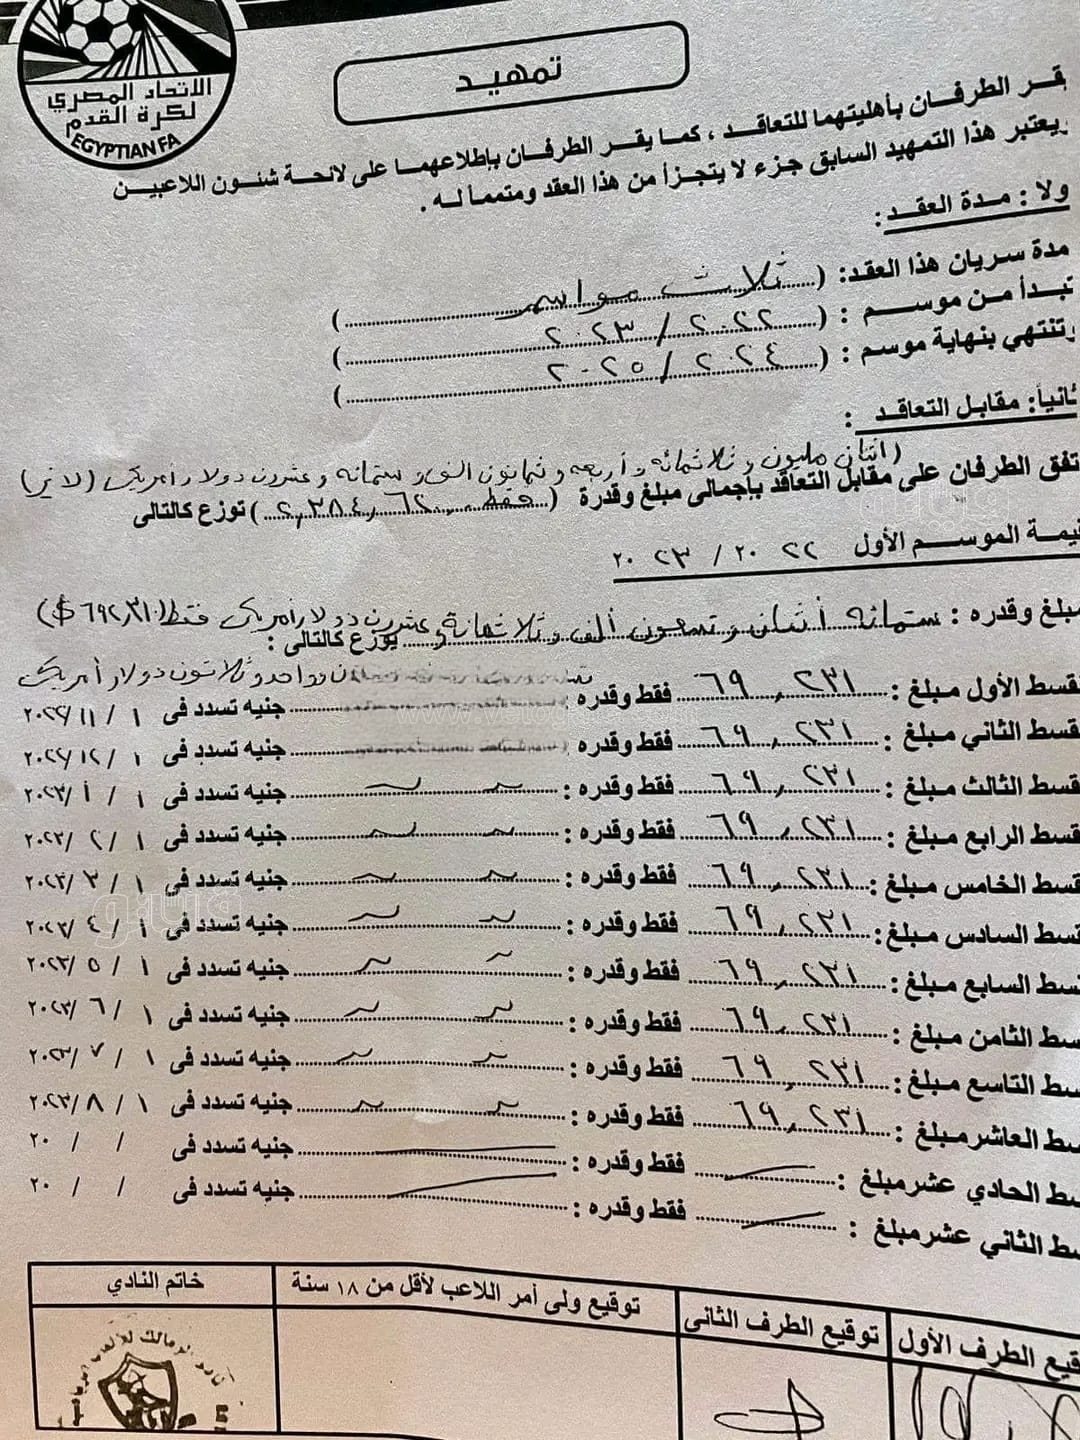 الاتحاد المصري
لكرة القدم
EGYPTIAN FA
تمهيد
يقر الطرفان بأهليتهما للتعاقد ، كما يقر الطرفان بإطلاعهما على لائحة شئون اللاعبين
ويعتبر هذا التمهيد السابق جزء لا يتجزأ من هذا العقد ومتمماً له .
ولا : مدة العقد :
مدة سريان هذا العقد: ( ثلاث مواسم )
تبدأ من موسم : ( ٢٠٢٢ / ٢٠٢٣ )
وتنتهي بنهاية موسم : ( ٢٠٢٤ / ٢٠٢٥ )
ثانياً: مقابل التعاقد :
(اثنان مليون وثلاثمائه وأربعه وثمانون الف وستمائه وعشرون دولار أمريكى (لا غير)
تفق الطرفان على مقابل التعاقد بإجمالى مبلغ وقدرة ( فقط ٢,٣٨٤,٦٢٠ ) توزع كالتالى
قيمة الموسم الأول ٢٠٢٢ / ٢٠٢٣
مبلغ وقدره : ستمائه أثنان وتسعون ألف وثلاثمائة وعشرون دولار أمريكى فقط (٦٩٢,٣١٠ $)
يوزع كالتالى :
وواحد وثلاثون دولار أمريكى
قسط الأول مبلغ : ٦٩,٢٣١ فقط وقدره : جنيه تسدد فى ١ / ١١ / ٢٠٢٢
قسط الثاني مبلغ : ٦٩,٢٣١ فقط وقدره : جنيه تسدد فى ١ / ١٢ / ٢٠٢٢
قسط الثالث مبلغ : ٦٩,٢٣١ فقط وقدره : جنيه تسدد فى ١ / ١ / ٢٠٢٣
قسط الرابع مبلغ : ٦٩,٢٣١ فقط وقدره : جنيه تسدد فى ١ / ٢ / ٢٠٢٣
قسط الخامس مبلغ : ٦٩,٢٣١ فقط وقدره : جنيه تسدد فى ١ / ٣ / ٢٠٢٣
قسط السادس مبلغ : ٦٩,٢٣١ فقط وقدره : جنيه تسدد فى ١ / ٤ / ٢٠٢٣
قسط السابع مبلغ : ٦٩,٢٣١ فقط وقدره : جنيه تسدد فى ١ / ٥ / ٢٠٢٣
سط الثامن مبلغ : ٦٩,٢٣١ فقط وقدره : جنيه تسدد فى ١ / ٦ / ٢٠٢٣
سط التاسع مبلغ : ٦٩,٢٣١ فقط وقدره : جنيه تسدد فى ١ / ٧ / ٢٠٢٣
سط العاشر مبلغ : ٦٩,٢٣١ فقط وقدره : جنيه تسدد فى ١ / ٨ / ٢٠٢٣
سط الحادي عشر مبلغ : فقط وقدره : جنيه تسدد فى / / ٢٠
سط الثاني عشر مبلغ : فقط وقدره : جنيه تسدد فى / / ٢٠
قيع الطرف الأول توقيع الطرف الثانى توقيع ولى أمر اللاعب لأقل من ١٨ سنة خاتم النادي
نادى الزمالك للألعاب الرياضية